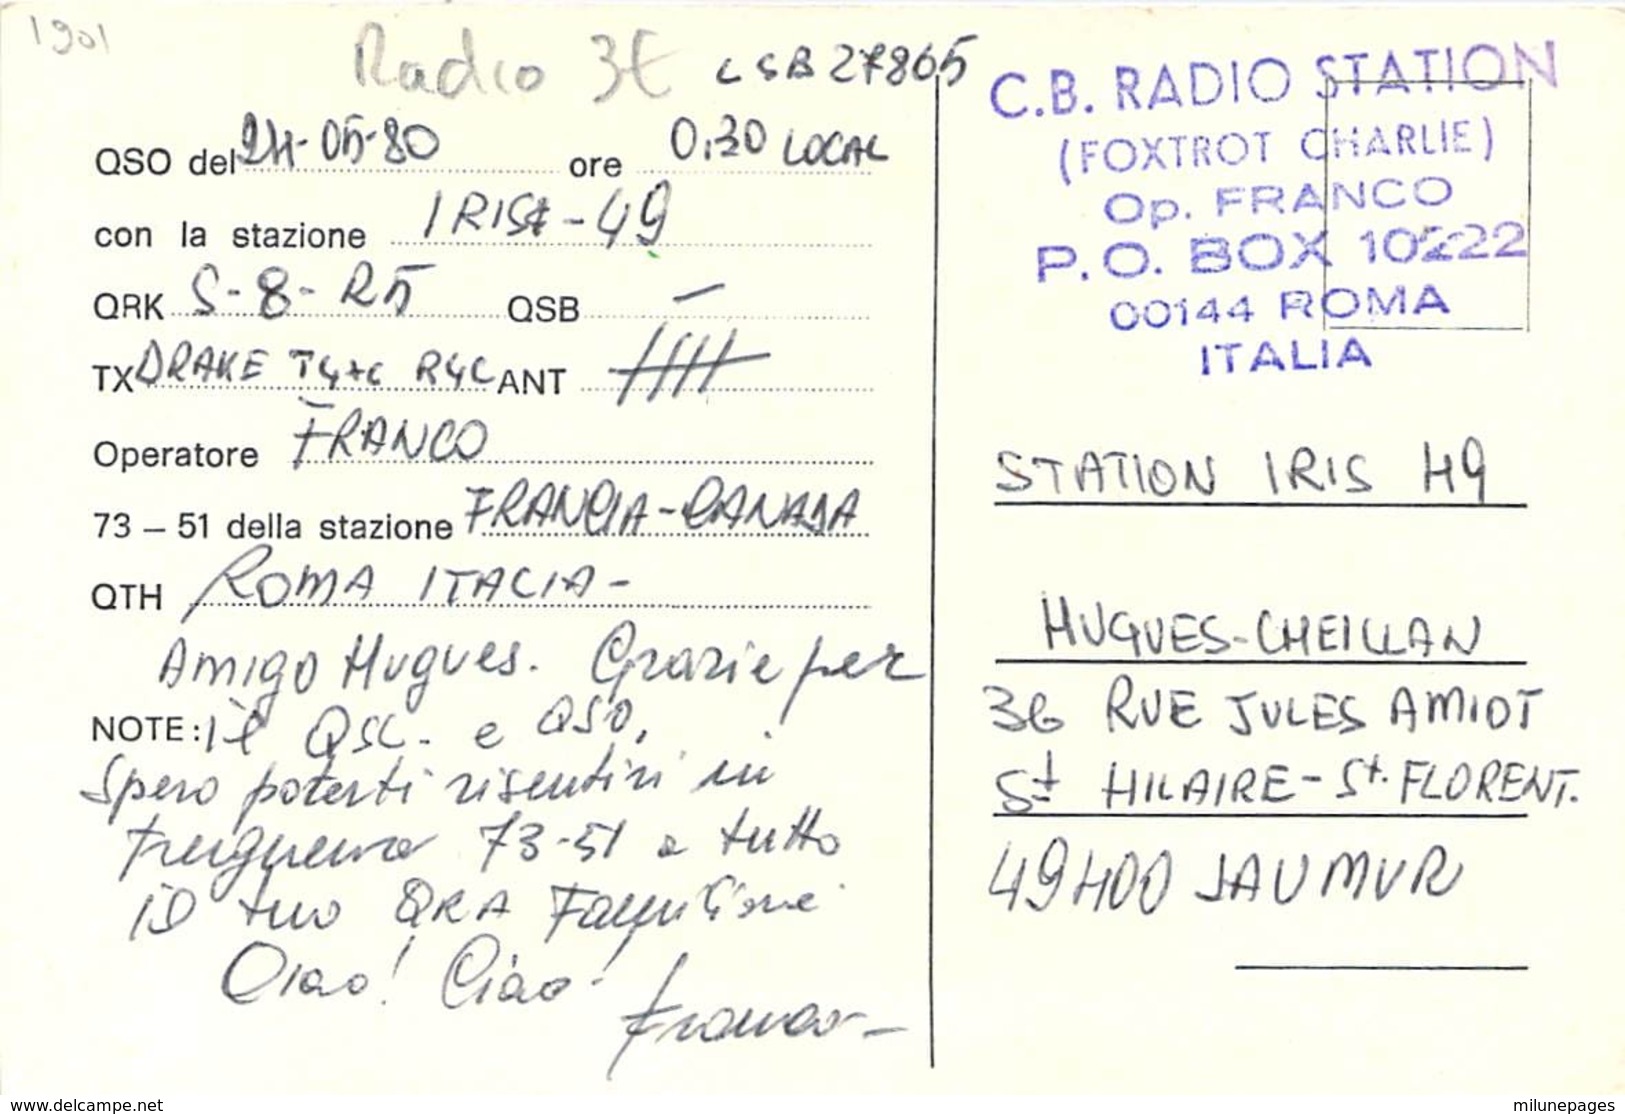 1901
Radio 3€ LSB 27865
QSO del 24-05-80 ore 0.30 LOCAL
con la stazione IRIS - 49
QRK S-8-R5 QSB —
TX DRAKE T4XC R4C ANT
Operatore FRANCO
73 – 51 della stazione FRANCIA-CANADA
QTH ROMA ITALIA -
Amigo Hugues. Grazie per
NOTE: il QSL. e QSO,
Spero poterti risentire in
Frequenza 73-51 a tutto
il tuo QRA
Ciao! Ciao!
Franco -
C.B. RADIO STATION
(FOXTROT CHARLIE)
Op. FRANCO
P.O. BOX 10222
00144 ROMA
ITALIA
STATION IRIS 49
HUGUES-CHEILLAN
36 RUE JULES AMIOT
St HILAIRE - St. FLORENT.
49400 SAUMUR
www.delcampe.net
milunepages